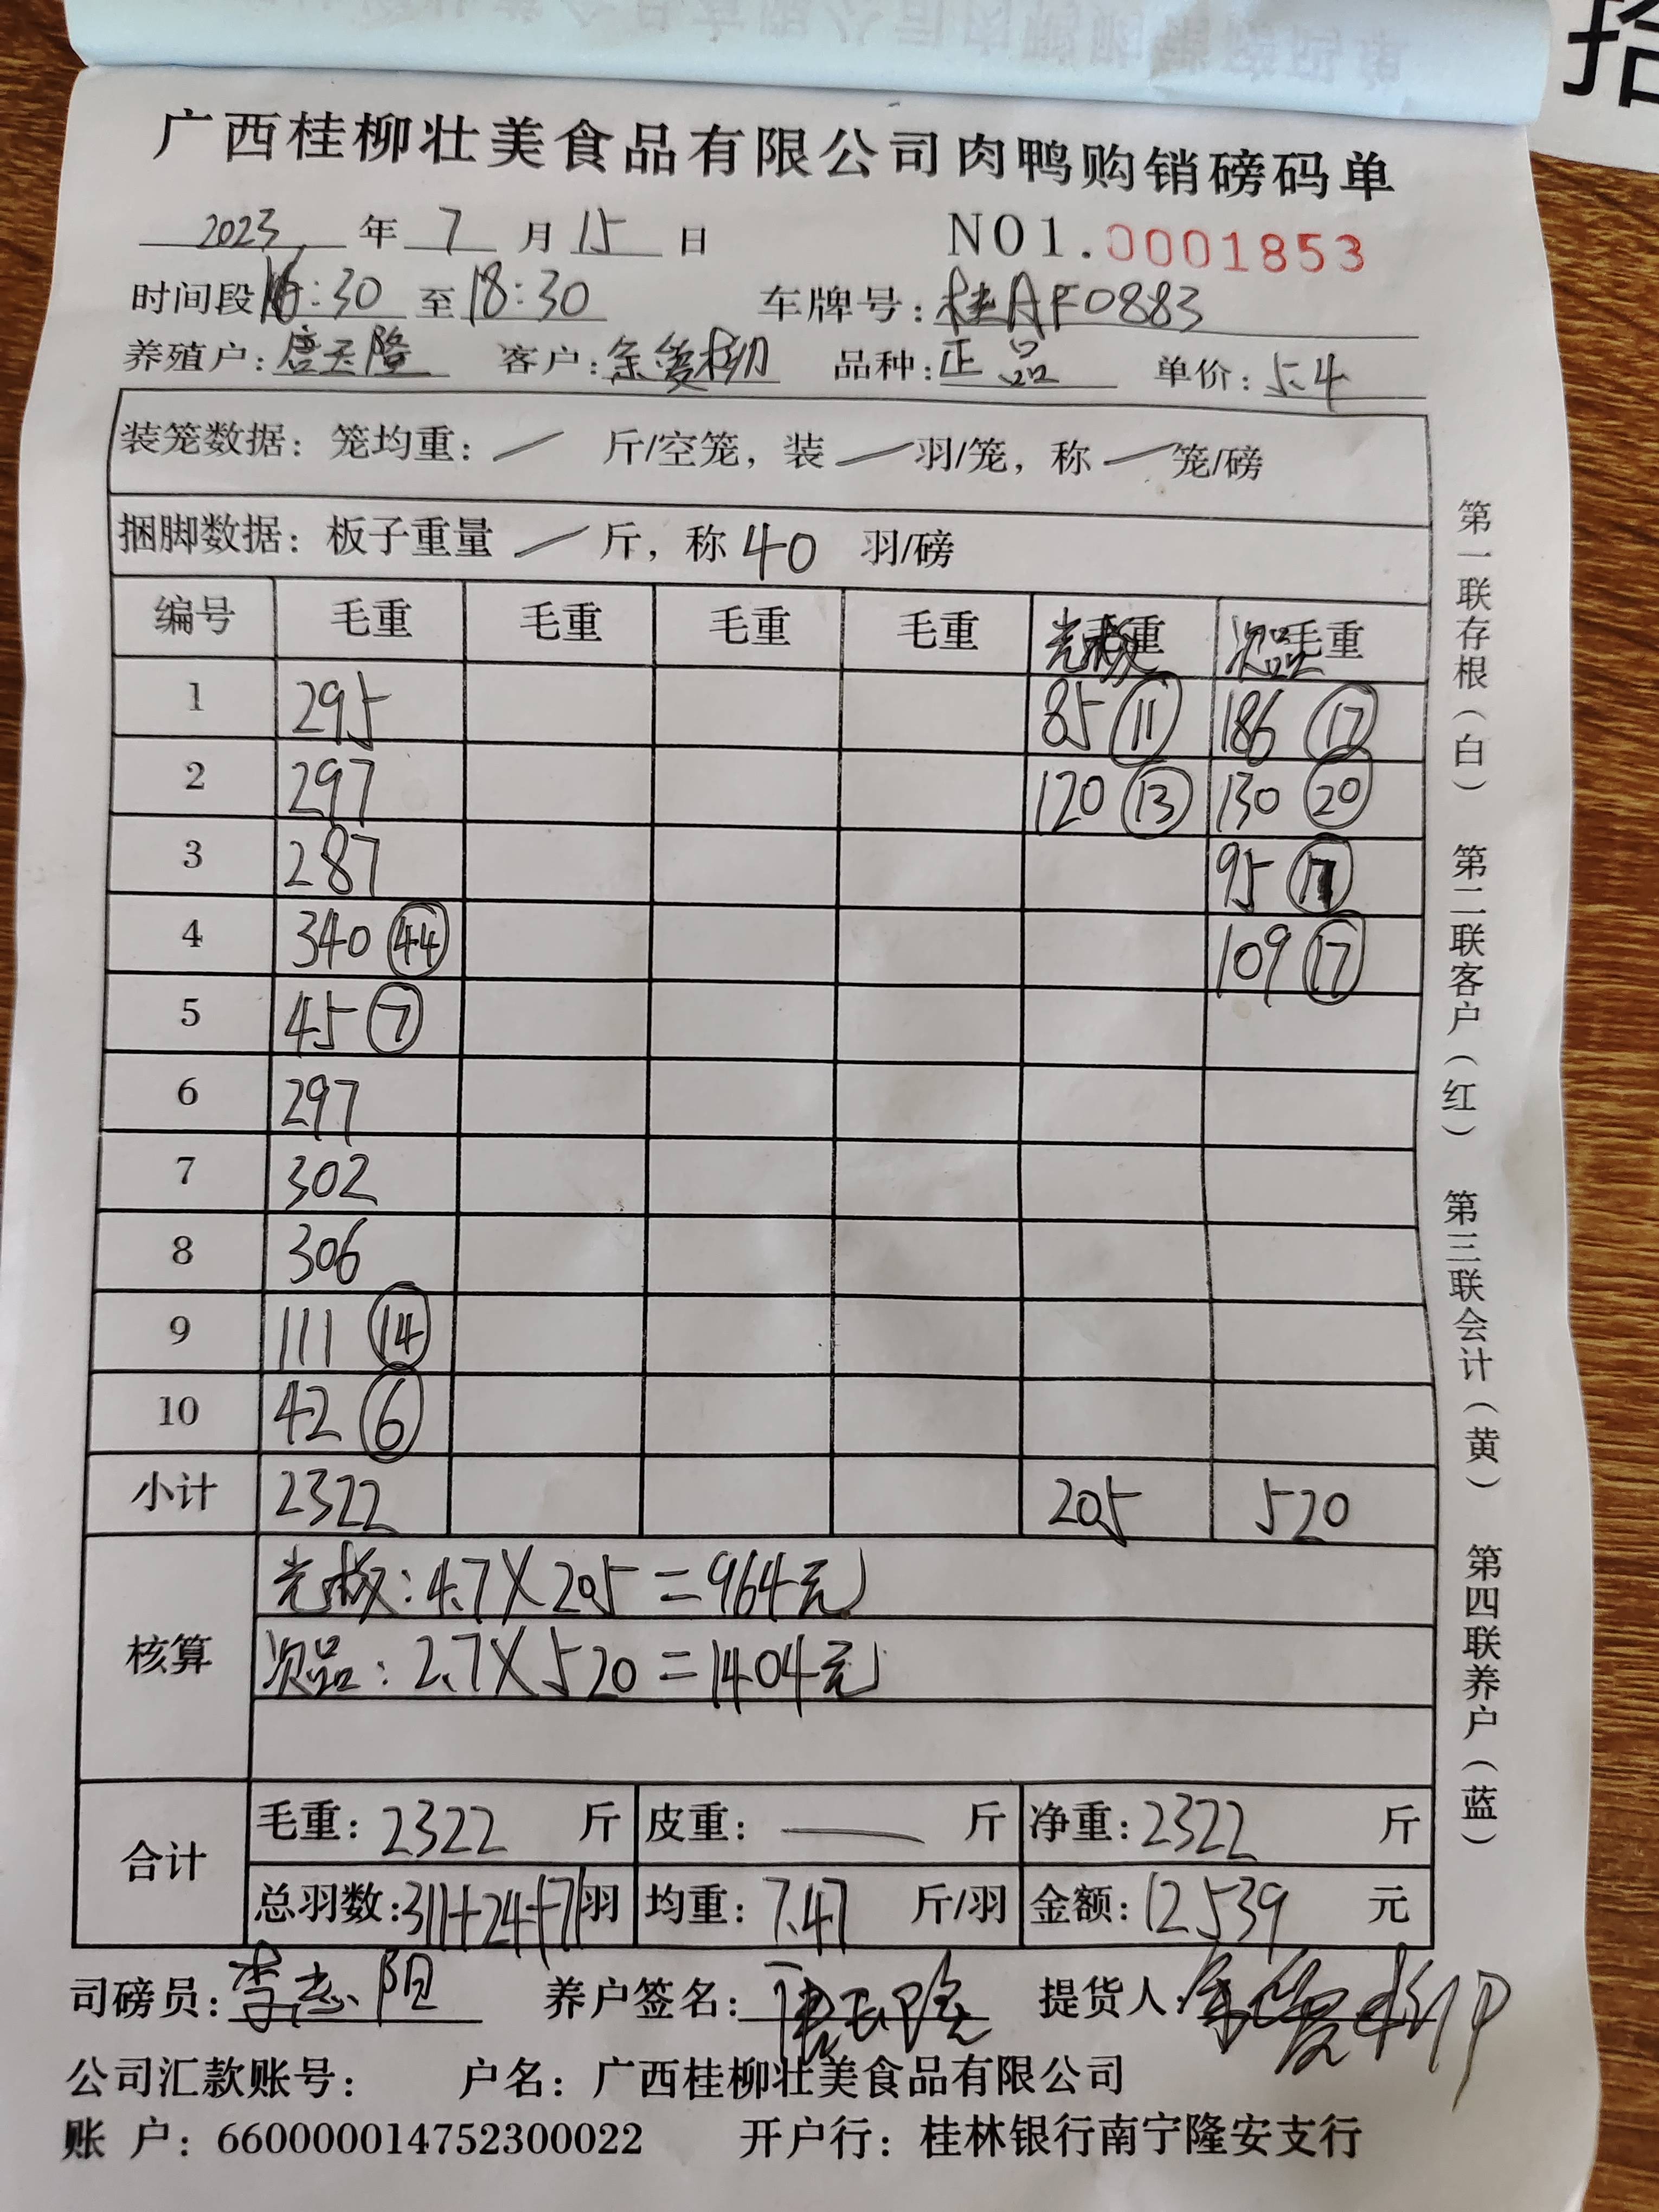 拾
广西桂柳壮美食品有限公司肉鸭购销磅码单
2023 年 7 月 15 日 NO1.0001853
时间段 16:30 至 18:30 车牌号: 桂AF0883
养殖户: 唐天隆 客户: 余爱柳 品种: 正品 单价: 5.4
装笼数据: 笼均重: / 斤/空笼, 装 / 羽/笼, 称 / 笼/磅
捆脚数据: 板子重量 / 斤, 称 40 羽/磅
编号 毛重 毛重 毛重 毛重 光板 重 次品 毛重
1 295 85 (11) 186 (17)
2 297 120 (13) 130 (20)
3 287 95 (17)
4 340 (44) 109 (17)
5 45 (7)
6 297
7 302
8 306
9 111 (14)
10 42 (6)
小计 2322 205 520
核算
光板: 4.7×205=964元
次品: 2.7×520=1404元
合计
毛重: 2322 斤 皮重: — 斤 净重: 2322 斤
总羽数: 311+24+71羽 均重: 7.47 斤/羽 金额: 12539 元
司磅员: 李志阳 养户签名: 唐天隆 提货人: 余爱柳
公司汇款账号: 户名: 广西桂柳壮美食品有限公司
账 户: 660000014752300022 开户行: 桂林银行南宁隆安支行
第一联存根(白) 第二联客户(红) 第三联会计(黄) 第四联养户(蓝)